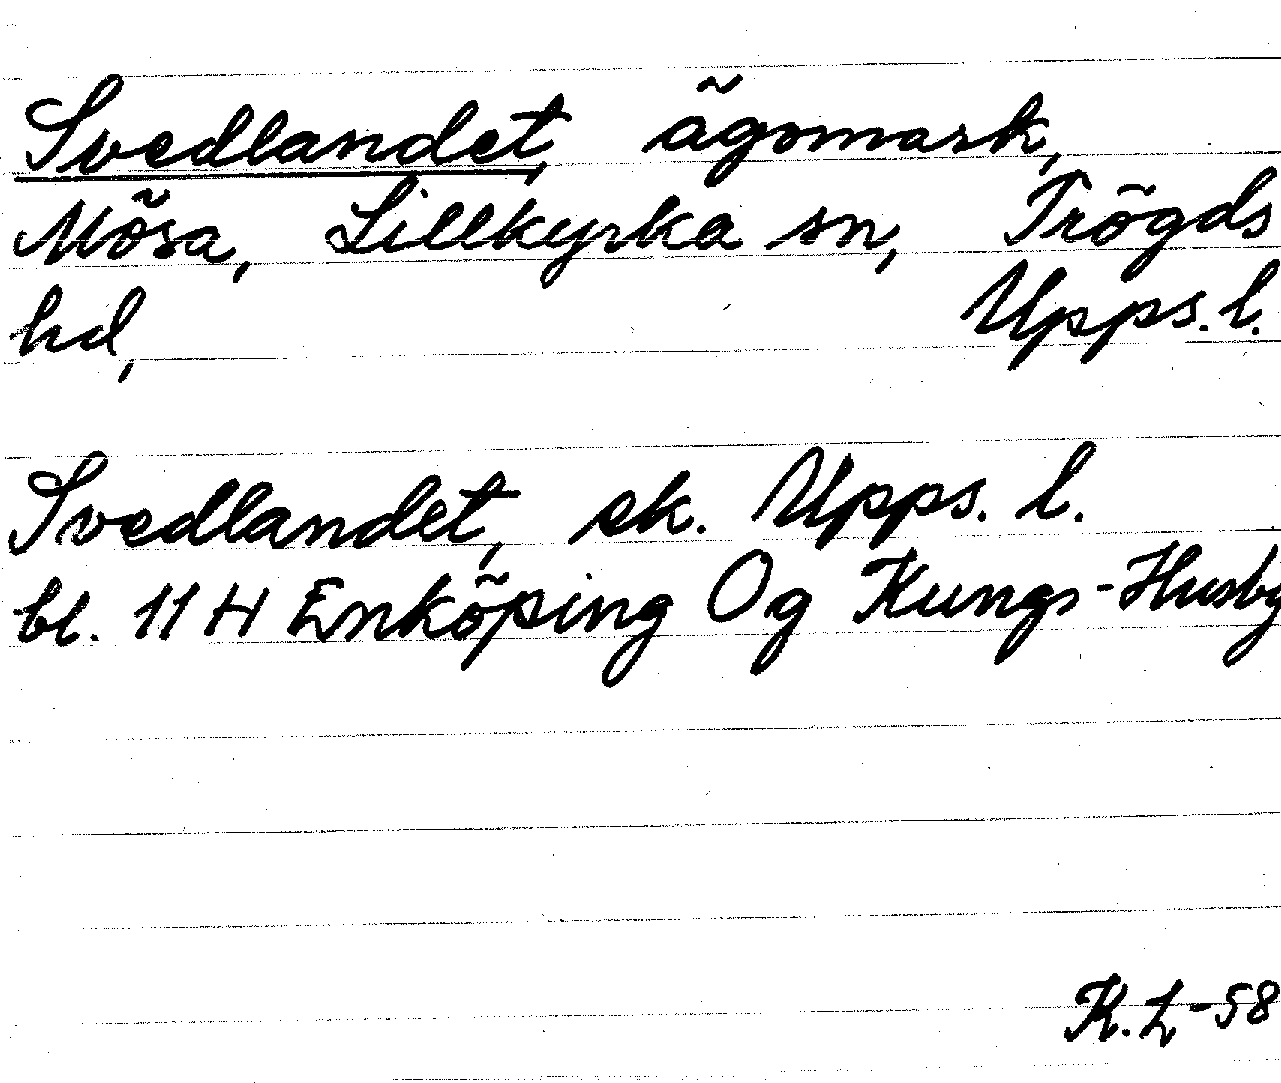 Svedlandet, ägomark,
Mösa, Lillkyrka sn, Trögds
hd, Upps. l.
Svedlandet, ek. Upps. l.
bl. 11 H Enköping Og Kungs-Husby
K. L-58